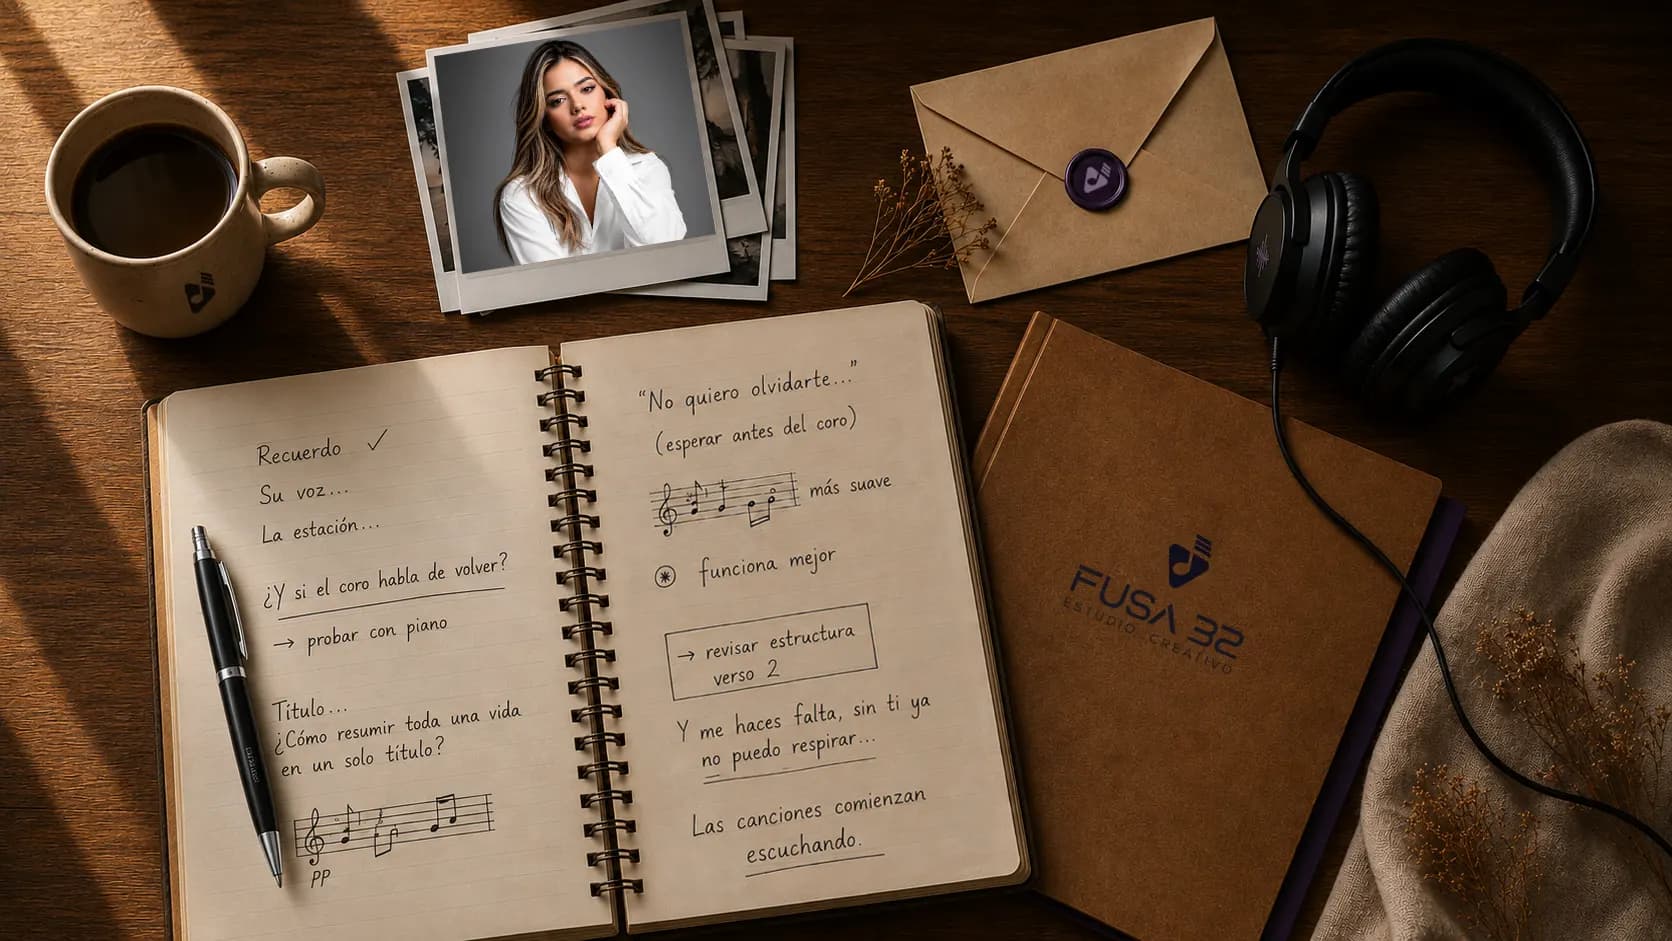 Recuerdo ✓
Su voz...
La estación...
¿Y si el coro habla de volver?
→ probar con piano
Título...
¿Cómo resumir toda una vida
en un solo título?
pp
“No quiero olvidarte...”
(esperar antes del coro)
más suave
funciona mejor
→ revisar estructura
verso 2
Y me haces falta, sin ti ya
no puedo respirar...
Las canciones comienzan
escuchando.
FUSA 32
ESTUDIO CREATIVO